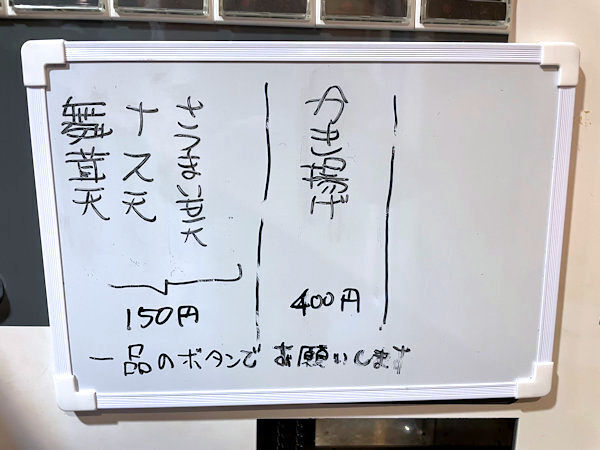 さつまいも天
ナス天
舞茸天
400円
150円
一品のボタンでお願いします